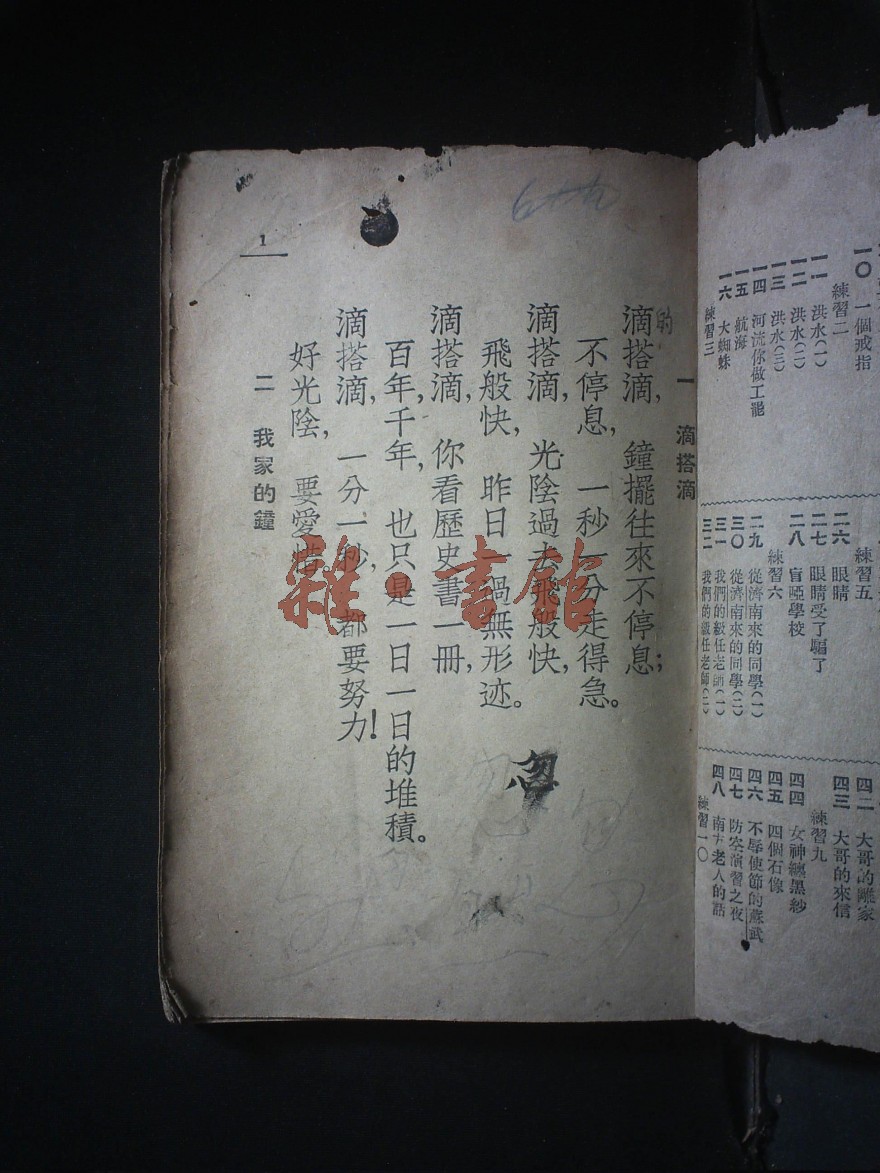 一〇 一個戒指
練習二
一一 洪水(一)
一二 洪水(二)
一三 洪水(三)
一四 河流你做工罷
一五 航海
一六 大蜘蛛
練習三
練習五
二六 眼睛
二七 眼睛受了騙了
二八 盲啞學校
練習六
二九 從濟南來的同學(一)
三〇 從濟南來的同學(二)
三一 我們的級任老師(一)
三二 我們的級任老師(二)
四二 大哥的離家
四三 大哥的來信
練習九
四四 女神纏黑紗
四五 四個石像
四六 不辱使節的蘇武
四七 防空演習之夜
四八 南方老人的話
練習一〇
一 滴搭滴
滴搭滴,鐘擺往來不停息;
不停息,一秒一分走得急。
滴搭滴,光陰過去飛般快,
飛般快,昨日一過無形迹。
滴搭滴,你看歷史書一冊,
百年千年,也只是一日一日的堆積。
滴搭滴,一分一秒,都要努力!
好光陰,要愛惜
二 我家的鐘
1
的
忽
雜·書館